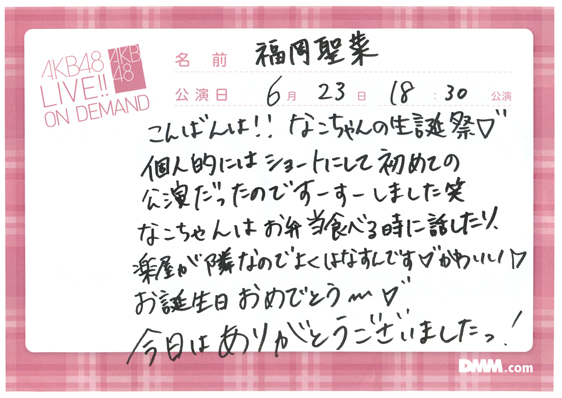 AKB48
LIVE!!
ON DEMAND
AKB
48
名前 福岡聖菜
公演日 6月23日 18:30 公演
こんばんは!! なこちゃんの生誕祭♡
個人的にはショートにして初めての
公演だったのですーすーしました笑
なこちゃんはお弁当食べる時に話したり、
楽屋が隣なのでよくはなすんです♡かわいい♡
お誕生日おめでとう〜♡
今日はありがとうございましたっ!
DMM.com